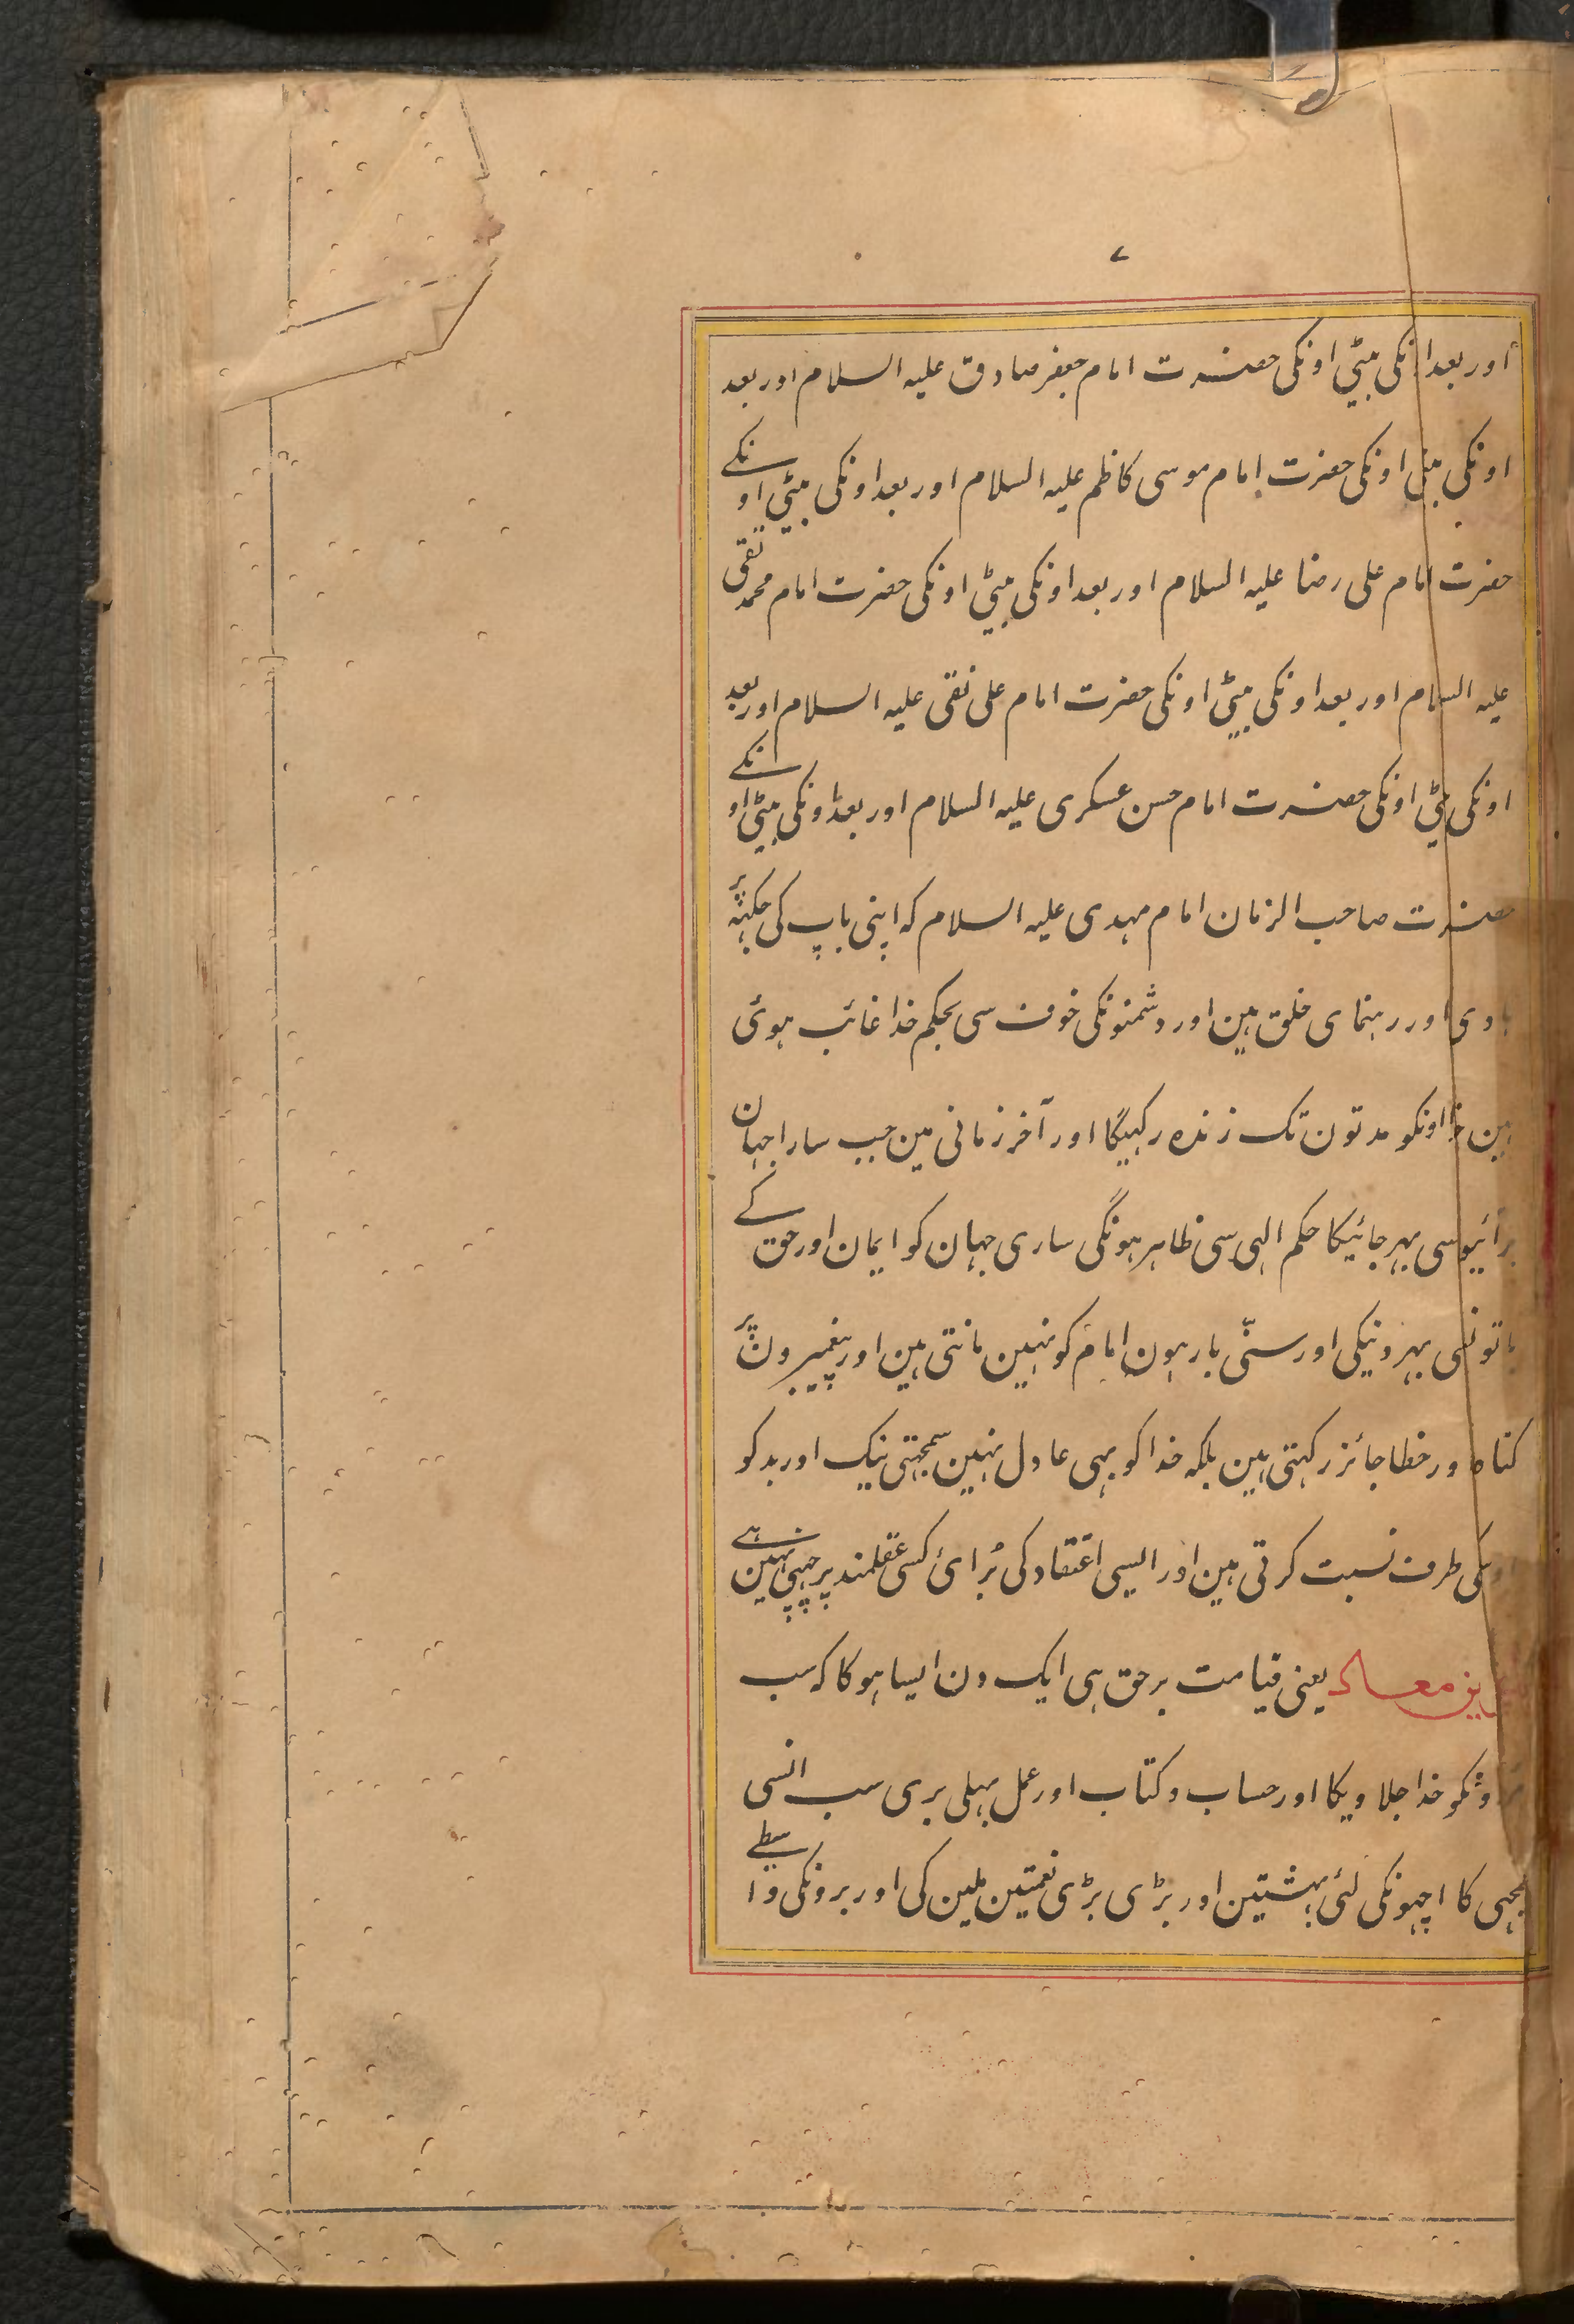 ۷
اور بعد اونکی بیٹی اونکی حضرت امام جعفر صادق علیہ السلام اور بعد
اونکی بیٹی اونکی حضرت امام موسی کاظم علیہ السلام اور بعد اونکی بیٹی اونکے
حضرت امام علی رضا علیہ السلام اور بعد اونکی بیٹی اونکی حضرت امام محمد تقی
علیہ السلام اور بعد اونکی بیٹی اونکی حضرت امام علی نقی علیہ السلام اور بعد
اونکی بیٹی اونکی حضرت امام حسن عسکری علیہ السلام اور بعد اونکی بیٹی اونکے
حضرت صاحب الزمان امام مہدی علیہ السلام کہ اپنی باپ کی جکہہ پر
ہادی اور رہنمای خلق ہین اور دشمنونکی خوف سی بحکم خدا غائب ہوئی
ہین خدا اونکو مدتون تک زندہ رکہیگا اور آخر زمانی مین جب سارا جہان
برائیوسی بہر جائیکا حکم الہی سی ظاہر ہونگی ساری جہان کو ایمان اور حق کے
باتونسی بہر دینکی اور سنّی بارہون امام کو نہین مانتی ہین اور پیغمبرون پر
کناہ اور خطا جائز رکہتی ہین بلکہ خدا کو بہی عادل نہین سمجہتی نیک اور بد کو
اوسکی طرف نسبت کرتی ہین اور ایسی اعتقاد کی بُرائ کسی عقلمند پر چہپی نہین ہے
معاد یعنی قیامت برحق ہی ایک دن ایسا ہوکا کہ سب
خدا جلاویکا اور حساب و کتاب اور عمل بہلی بری سب انسی
کا اچہونکی لئی بہشتین اور بڑی بڑی نعمتین ملین کی اور برونکی واسطے